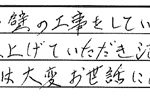 壁の工事をしてい
上げていただき
は大変お世話に